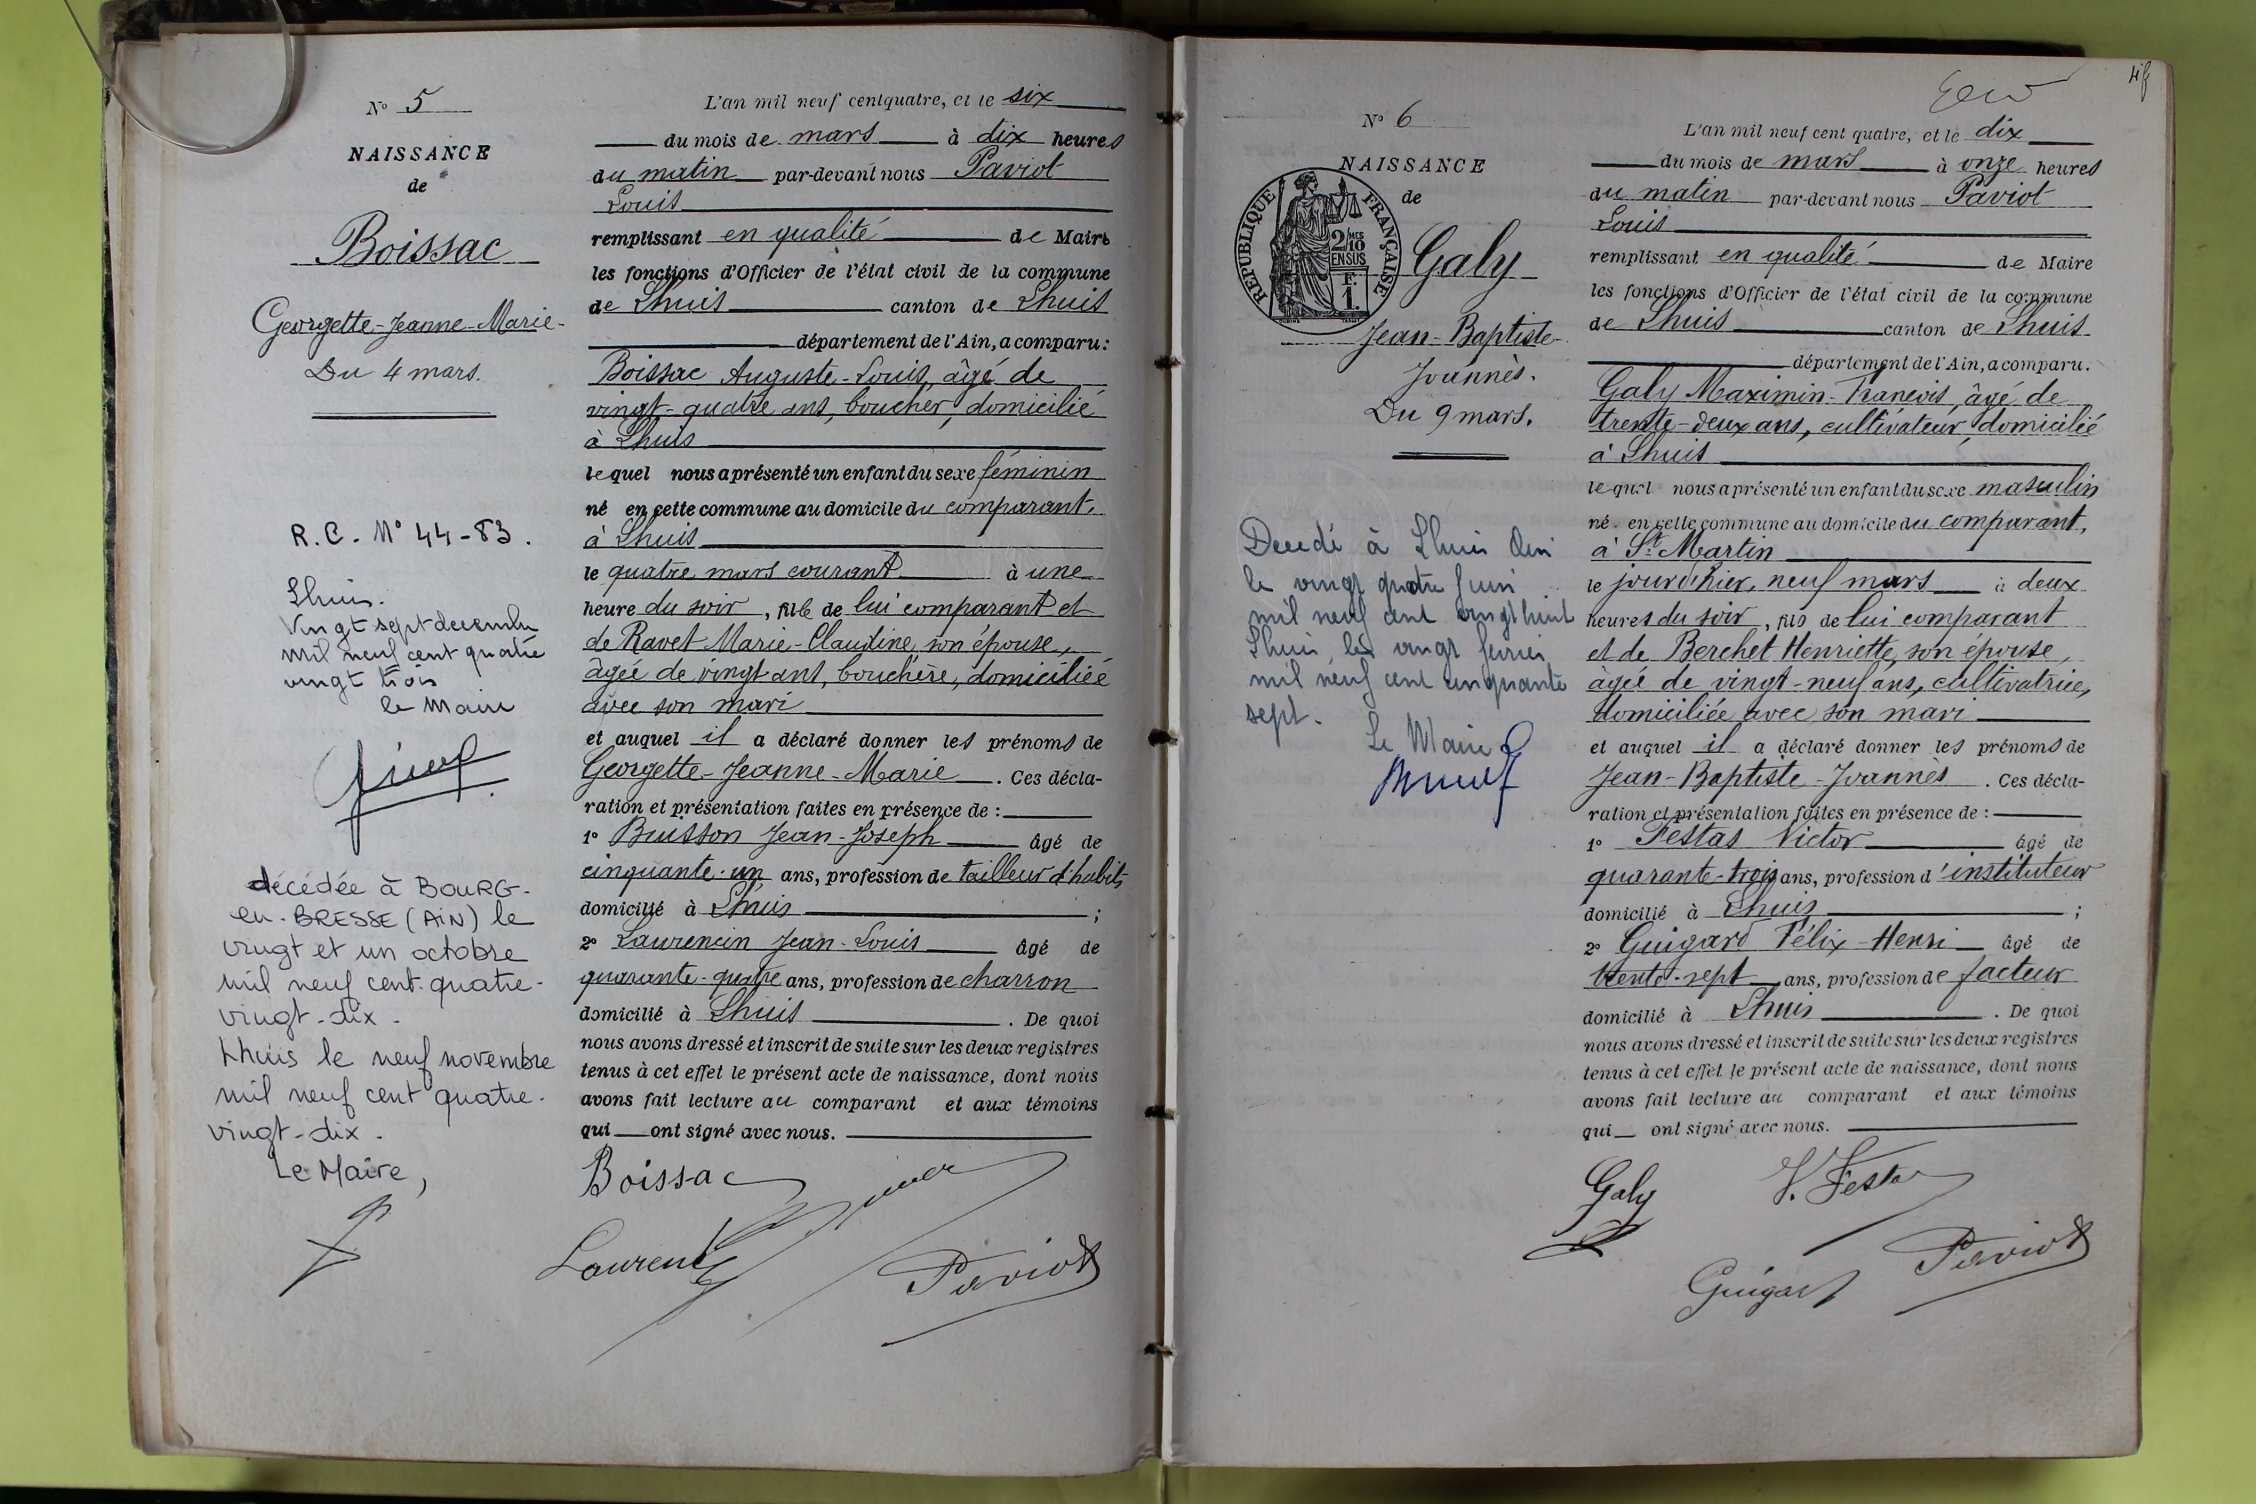 N° 5
NAISSANCE
de
Boissac
Georgette-Jeanne-Marie-
Du 4 mars.
R.C. N° 44-83.
Lhuis.
Vingt sept decembre
mil neuf cent quatre
vingt trois
le Maire
décédée à BOURG-
en-BRESSE (AIN) le
vingt et un octobre
mil neuf cent quatre-
vingt-dix.
Lhuis le neuf novembre
mil neuf cent quatre-
vingt-dix.
Le Maire,
L'an mil neuf cent quatre, et le six
du mois de mars à dix heures
du matin par-devant nous Paviot
Louis
remplissant en qualité de Maire
les fonctions d'Officier de l'état civil de la commune
de Lhuis canton de Lhuis
département de l'Ain, a comparu:
Boissac Auguste-Louis, âgé de
vingt-quatre ans, boucher, domicilié
à Lhuis
lequel nous a présenté un enfant du sexe féminin
né en cette commune au domicile du comparant,
à Lhuis
le quatre mars courant à une
heure du soir, fille de lui comparant et
de Ravet Marie-Claudine, son épouse,
âgée de vingt ans, bouchère, domiciliée
avec son mari
et auquel il a déclaré donner les prénoms de
Georgette-Jeanne-Marie. Ces décla-
ration et présentation faites en présence de :
1° Buisson Jean-Joseph âgé de
cinquante-un ans, profession de tailleur d'habits
domicilié à Lhuis ;
2° Laurencin Jean-Louis âgé de
quarante-quatre ans, profession de charron
domicilié à Lhuis. De quoi
nous avons dressé et inscrit de suite sur les deux registres
tenus à cet effet le présent acte de naissance, dont nous
avons fait lecture au comparant et aux témoins
qui ont signé avec nous.
Boissac
Laurencin
Paviot
N° 6
NAISSANCE
de
RÉPUBLIQUE FRANÇAISE
2/MES
10
EN SUS
F.
1.
Galy
Jean-Baptiste-
Joannès.
Du 9 mars.
Decedé à Lhuis Ain
le vingt quatre juin
mil neuf cent vingt huit
Lhuis, le vingt fevrier
mil neuf cent cinquante
sept.
Le Maire
L'an mil neuf cent quatre, et le dix
du mois de mars à onze heures
du matin par-devant nous Paviot
Louis
remplissant en qualité de Maire
les fonctions d'Officier de l'état civil de la commune
de Lhuis canton de Lhuis
département de l'Ain, a comparu.
Galy Maximin-François, âgé de
trente-deux ans, cultivateur, domicilié
à Lhuis
lequel nous a présenté un enfant du sexe masculin
né en cette commune au domicile du comparant,
à St. Martin
le jour d'hier, neuf mars à deux
heures du soir, fils de lui comparant
et de Berchet Henriette, son épouse,
âgée de vingt-neuf ans, cultivatrice,
domiciliée avec son mari
et auquel il a déclaré donner les prénoms de
Jean-Baptiste-Joannès. Ces décla-
ration et présentation faites en présence de :
1° Festas Victor âgé de
quarante-trois ans, profession d'instituteur
domicilié à Lhuis ;
2° Guigard Félix-Henri âgé de
trente-sept ans, profession de facteur
domicilié à Lhuis. De quoi
nous avons dressé et inscrit de suite sur les deux registres
tenus à cet effet le présent acte de naissance, dont nous
avons fait lecture au comparant et aux témoins
qui ont signé avec nous.
Galy
V. Festas
Guigard
Paviot